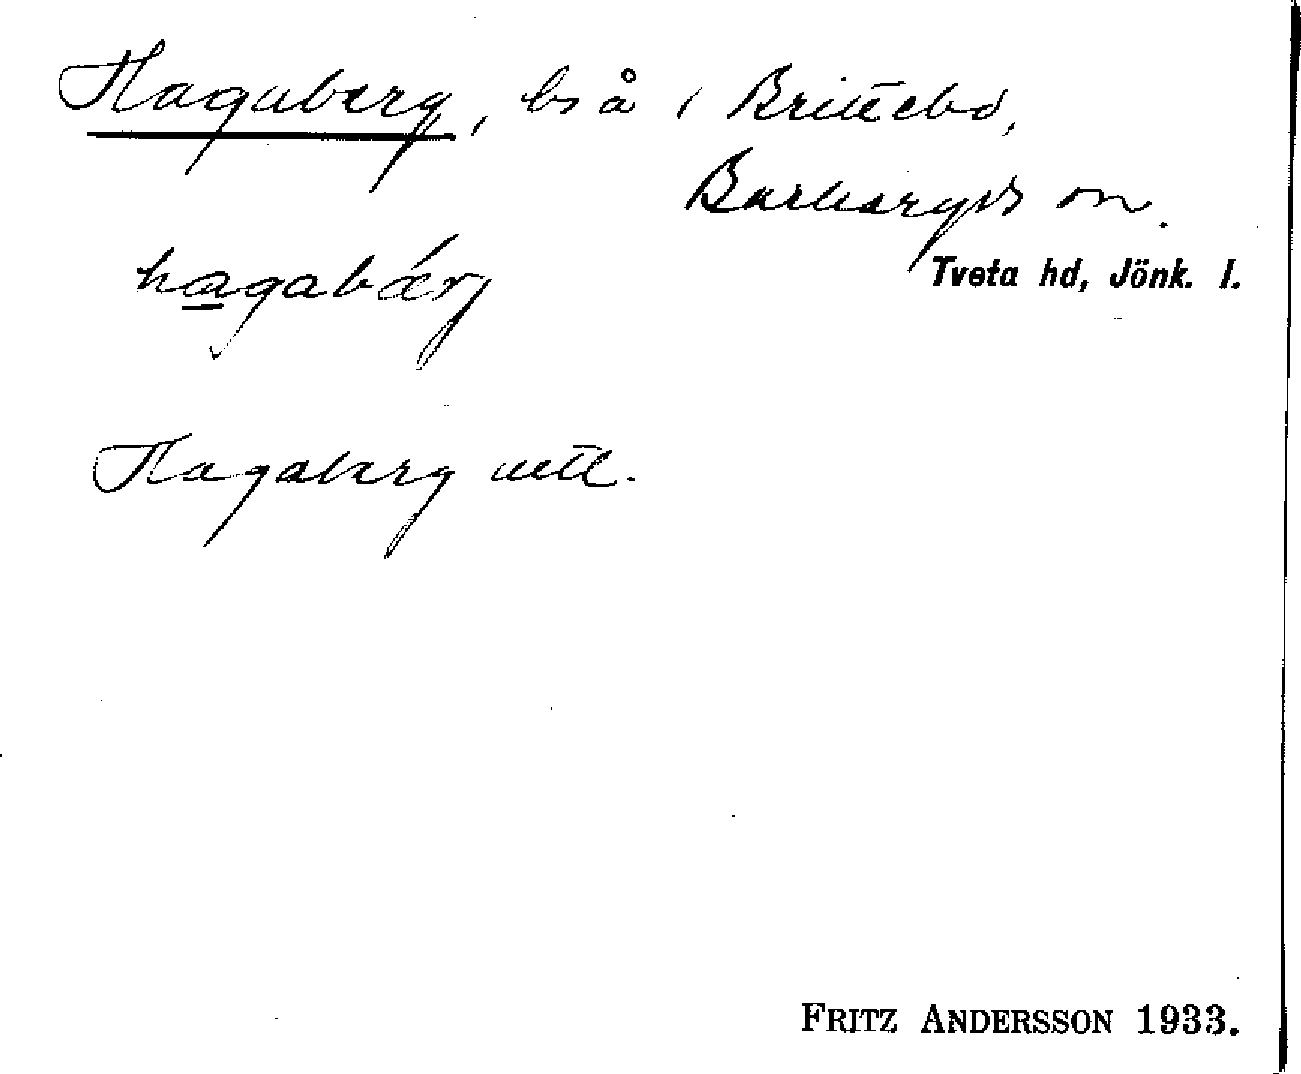 Hagaberg, bs å i Brittebo,
Barkeryds sn.
Tveta hd, Jönk. l.
hagabærj
Hagaberg uttl.
FRITZ ANDERSSON 1933.